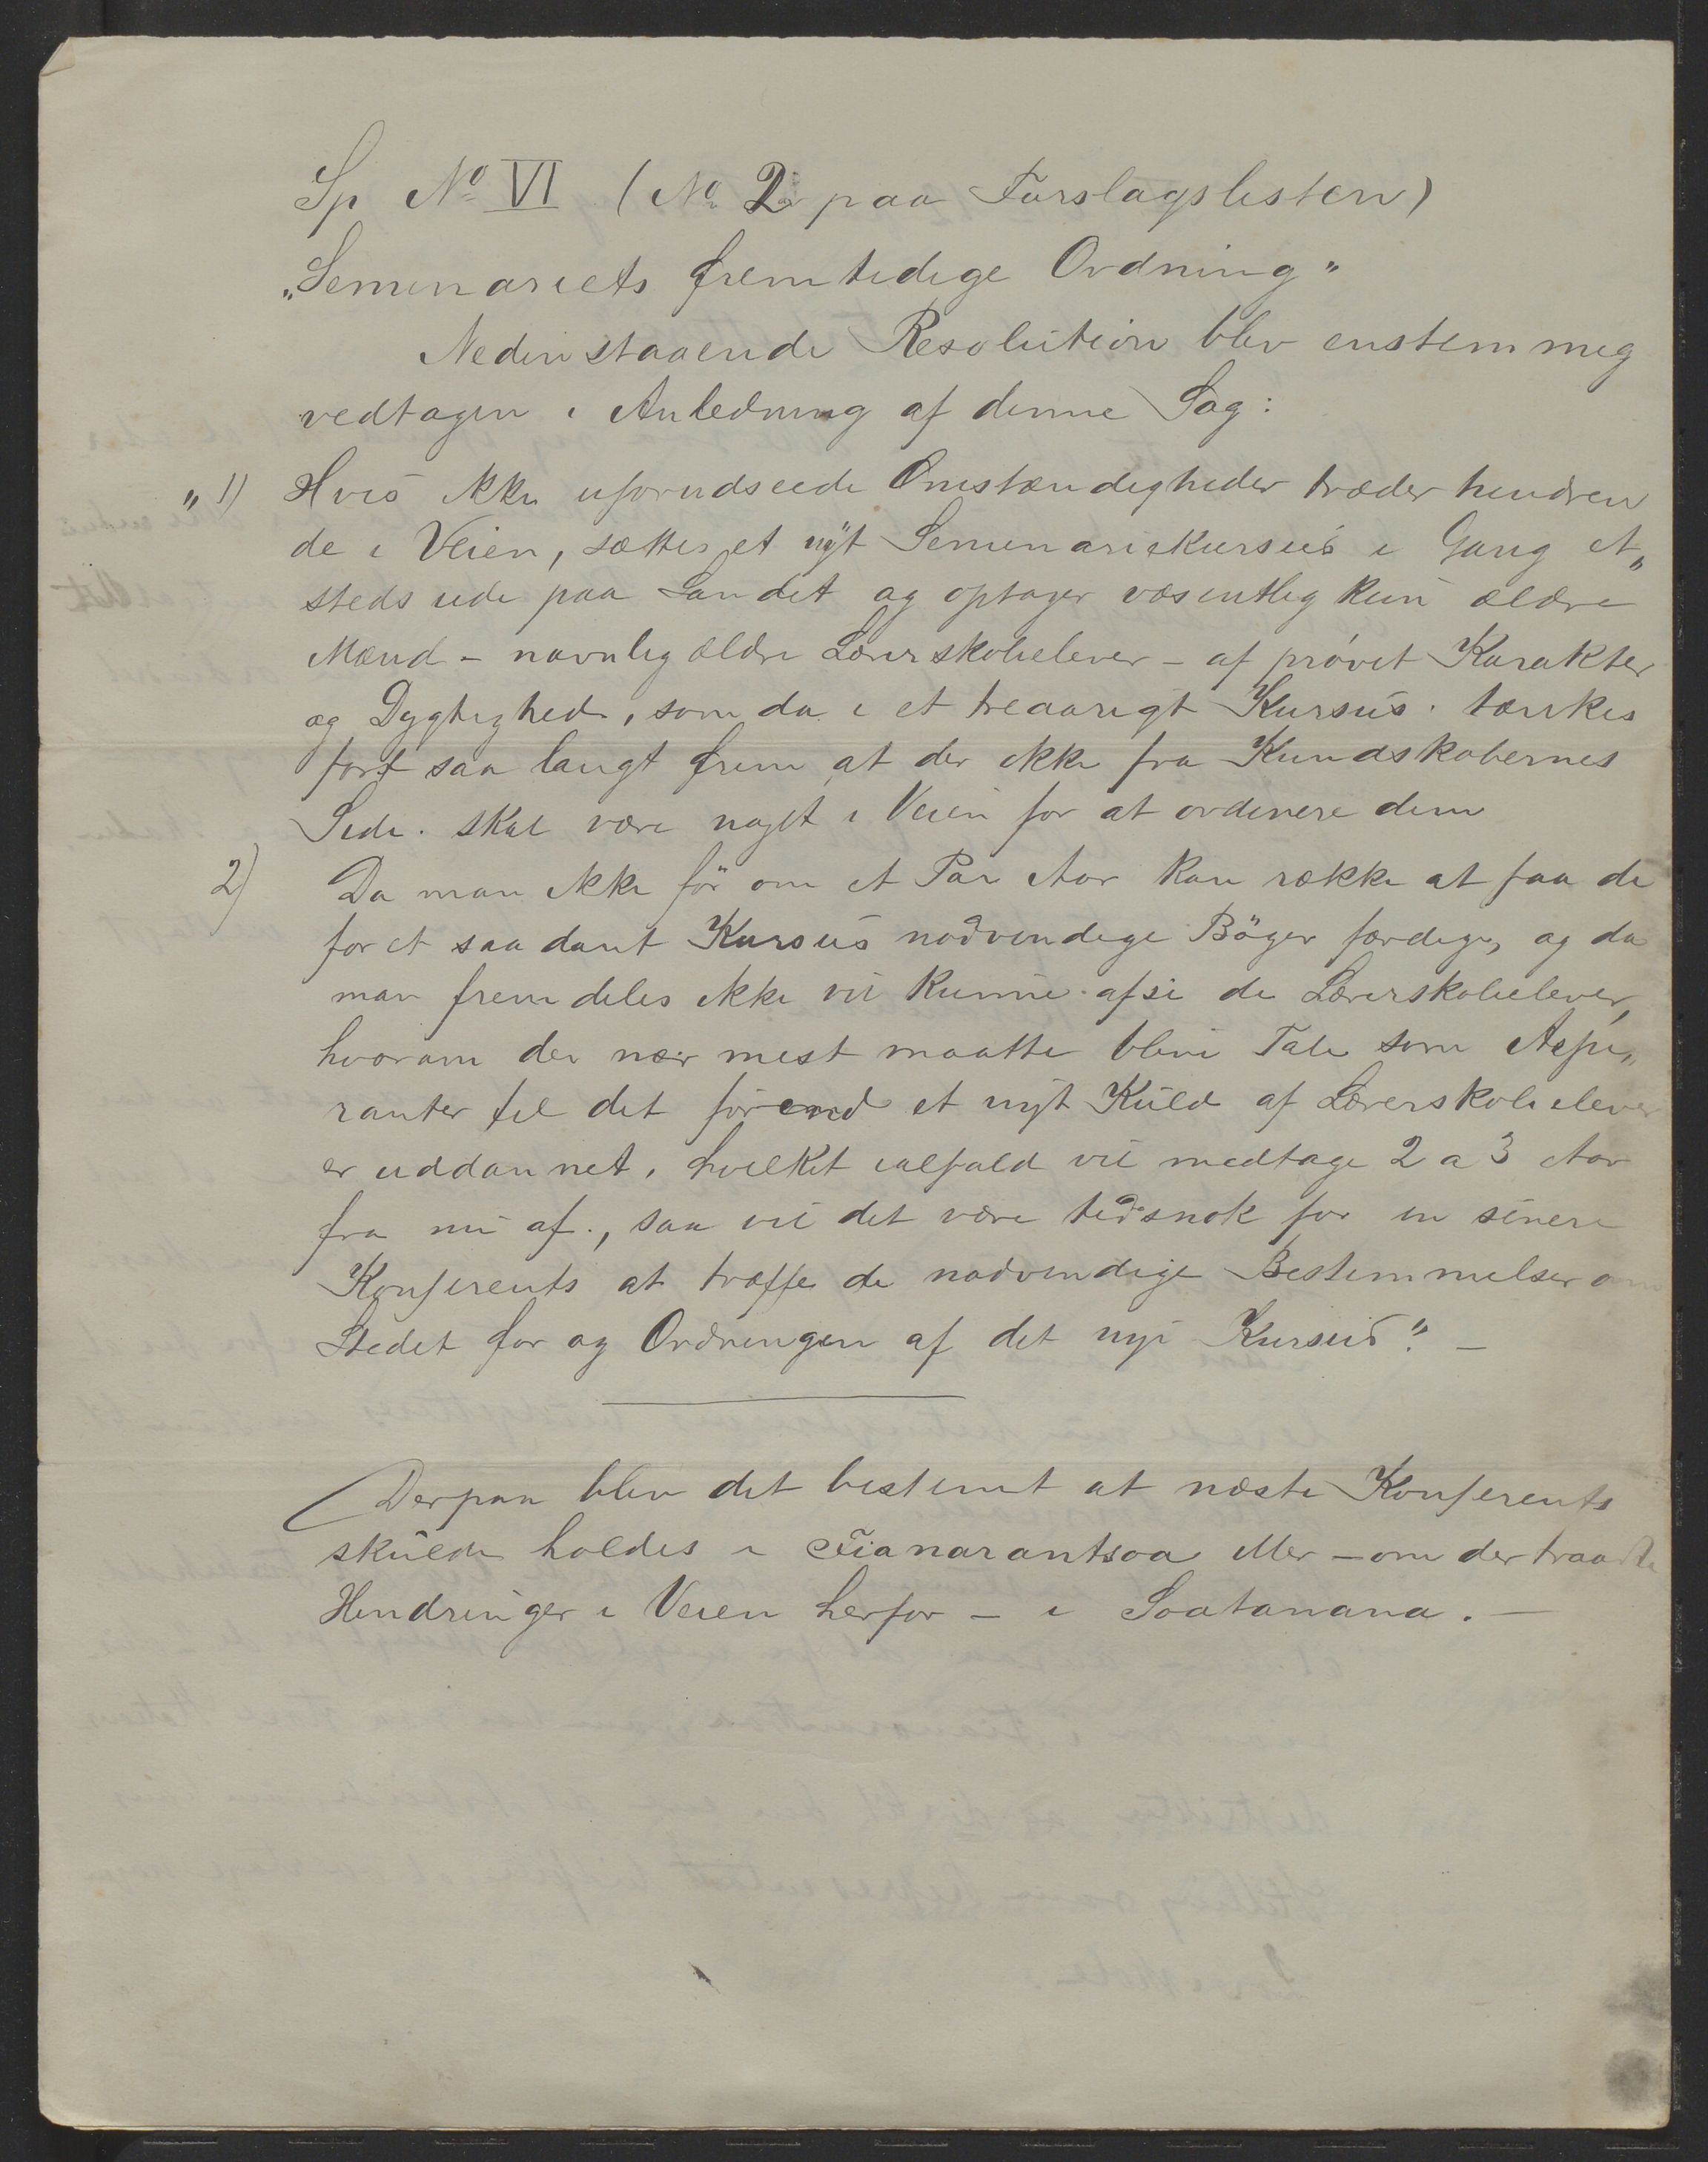 Sp No VI (No 2 paa Forslagslisten)
„Seminariets fremtidige Ordning"
Nedenstaaende Resolution blev enstemmig
vedtagen i Anledning af denne Sag:
„1) Hvis ikke uforudseede Omstændigheder træder hindren
de i Veien, sættes et nyt Seminariekursus i Gang et„
steds ude paa Landet og optager væsentlig kun ældre
Mænd – navnlig ældre Lærerskoleelever – af prøvet Karakter
og Dygtighed, som da i et treaarigt Kursus tænkes
ført saa langt frem at der ikke fra Kundskabernes
Side skal være noget i Veien for at ordinere dem
2) Da man ikke før om et Par Aar kan række at faa de
for et saadant Kursus nødvendige Bøger færdige, og da
man fremdeles ikke vil kunne afse de Lærerskoleelever,
hvorom der nær mest maatte blive Tale som Aspi„
ranter til det førend et nyt Kuld af Lærerskoleelever
er uddannet, hvilket ialfald vil medtage 2 a 3 Aar
fra nu af, saa vil det være tidsnok for en senere
Konferents at træffe de nødvendige Bestemmelser om
Stedet for og Ordningen af det nye Kursus". –
Derpaa blev det bestemt at næste Konferents
skulde holdes i Fianarantsoa eller – om der traadte
Hindringer i Veien herfor – i Soatanana. –